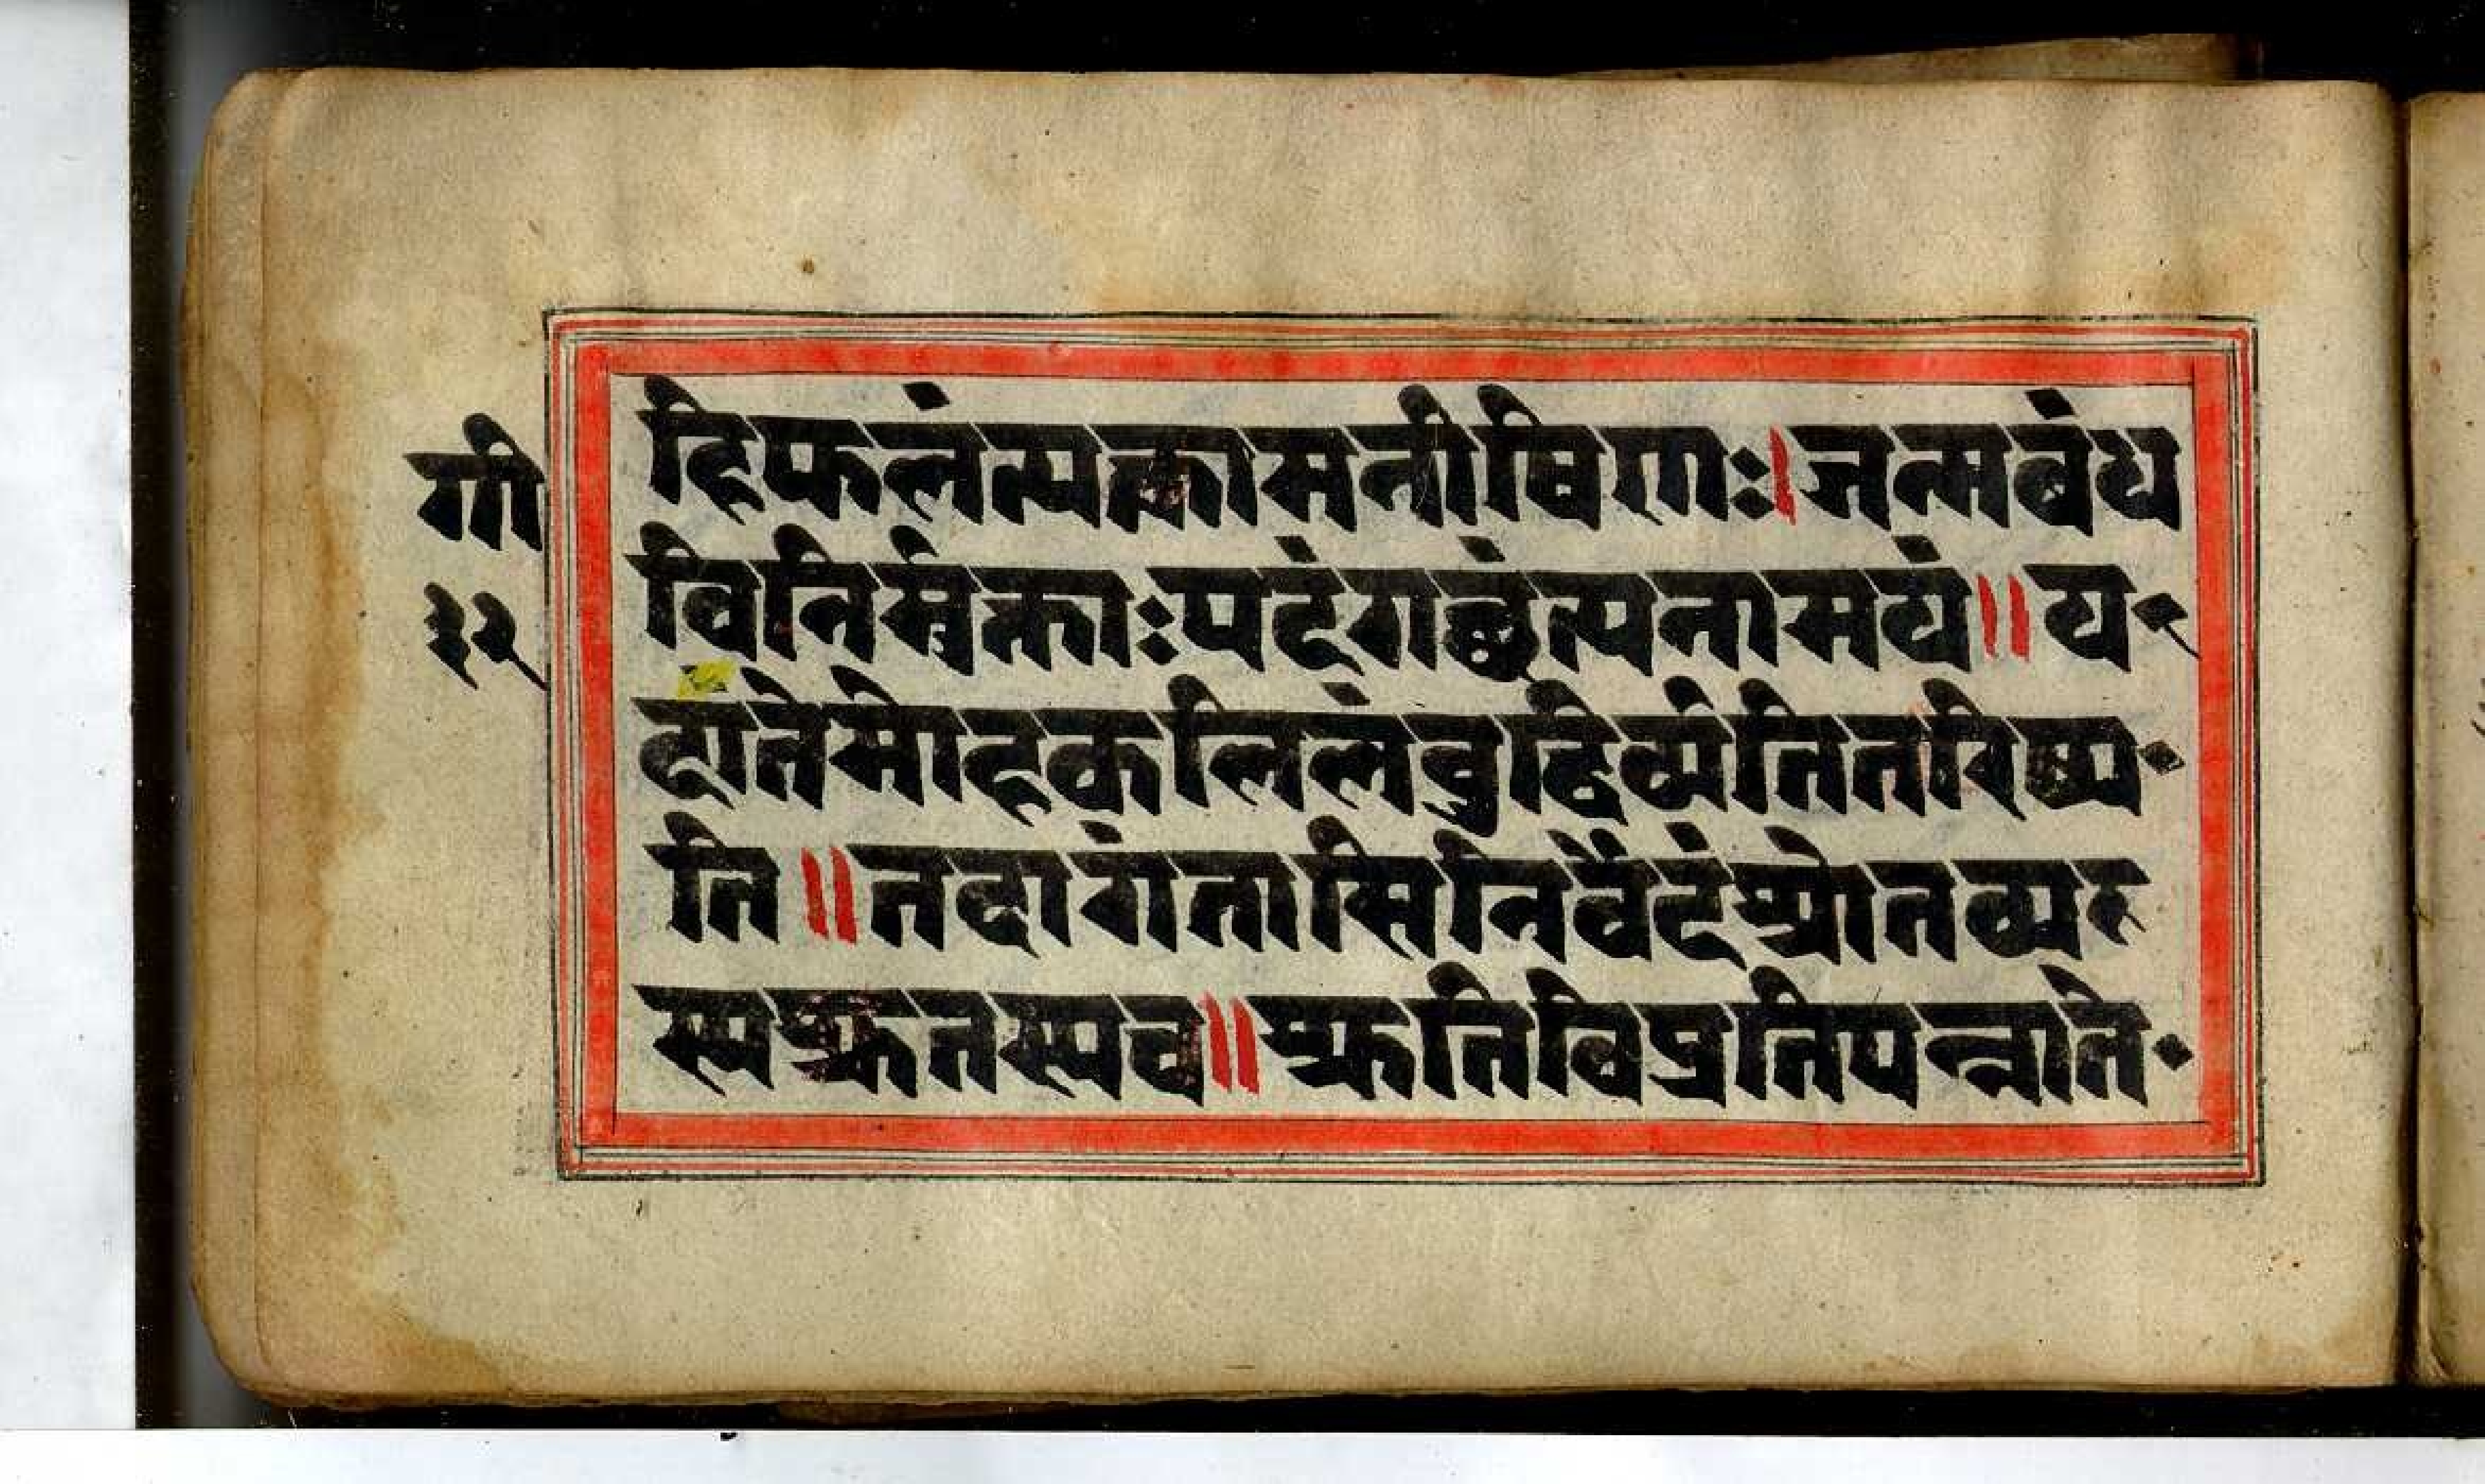 गी
३२
हिफलंत्यक्त्वामनीषिणः।जन्मबंध
विनिर्मुक्ताःपदंगछंत्यनामयं॥य
दातेमोहकलिलंबुद्धिर्व्यतितरिष्य
ति॥तदागंतासिनिर्वेदंश्रोतव्यस
स्यश्रुतस्यच॥श्रुतिविप्रतिपन्नाते